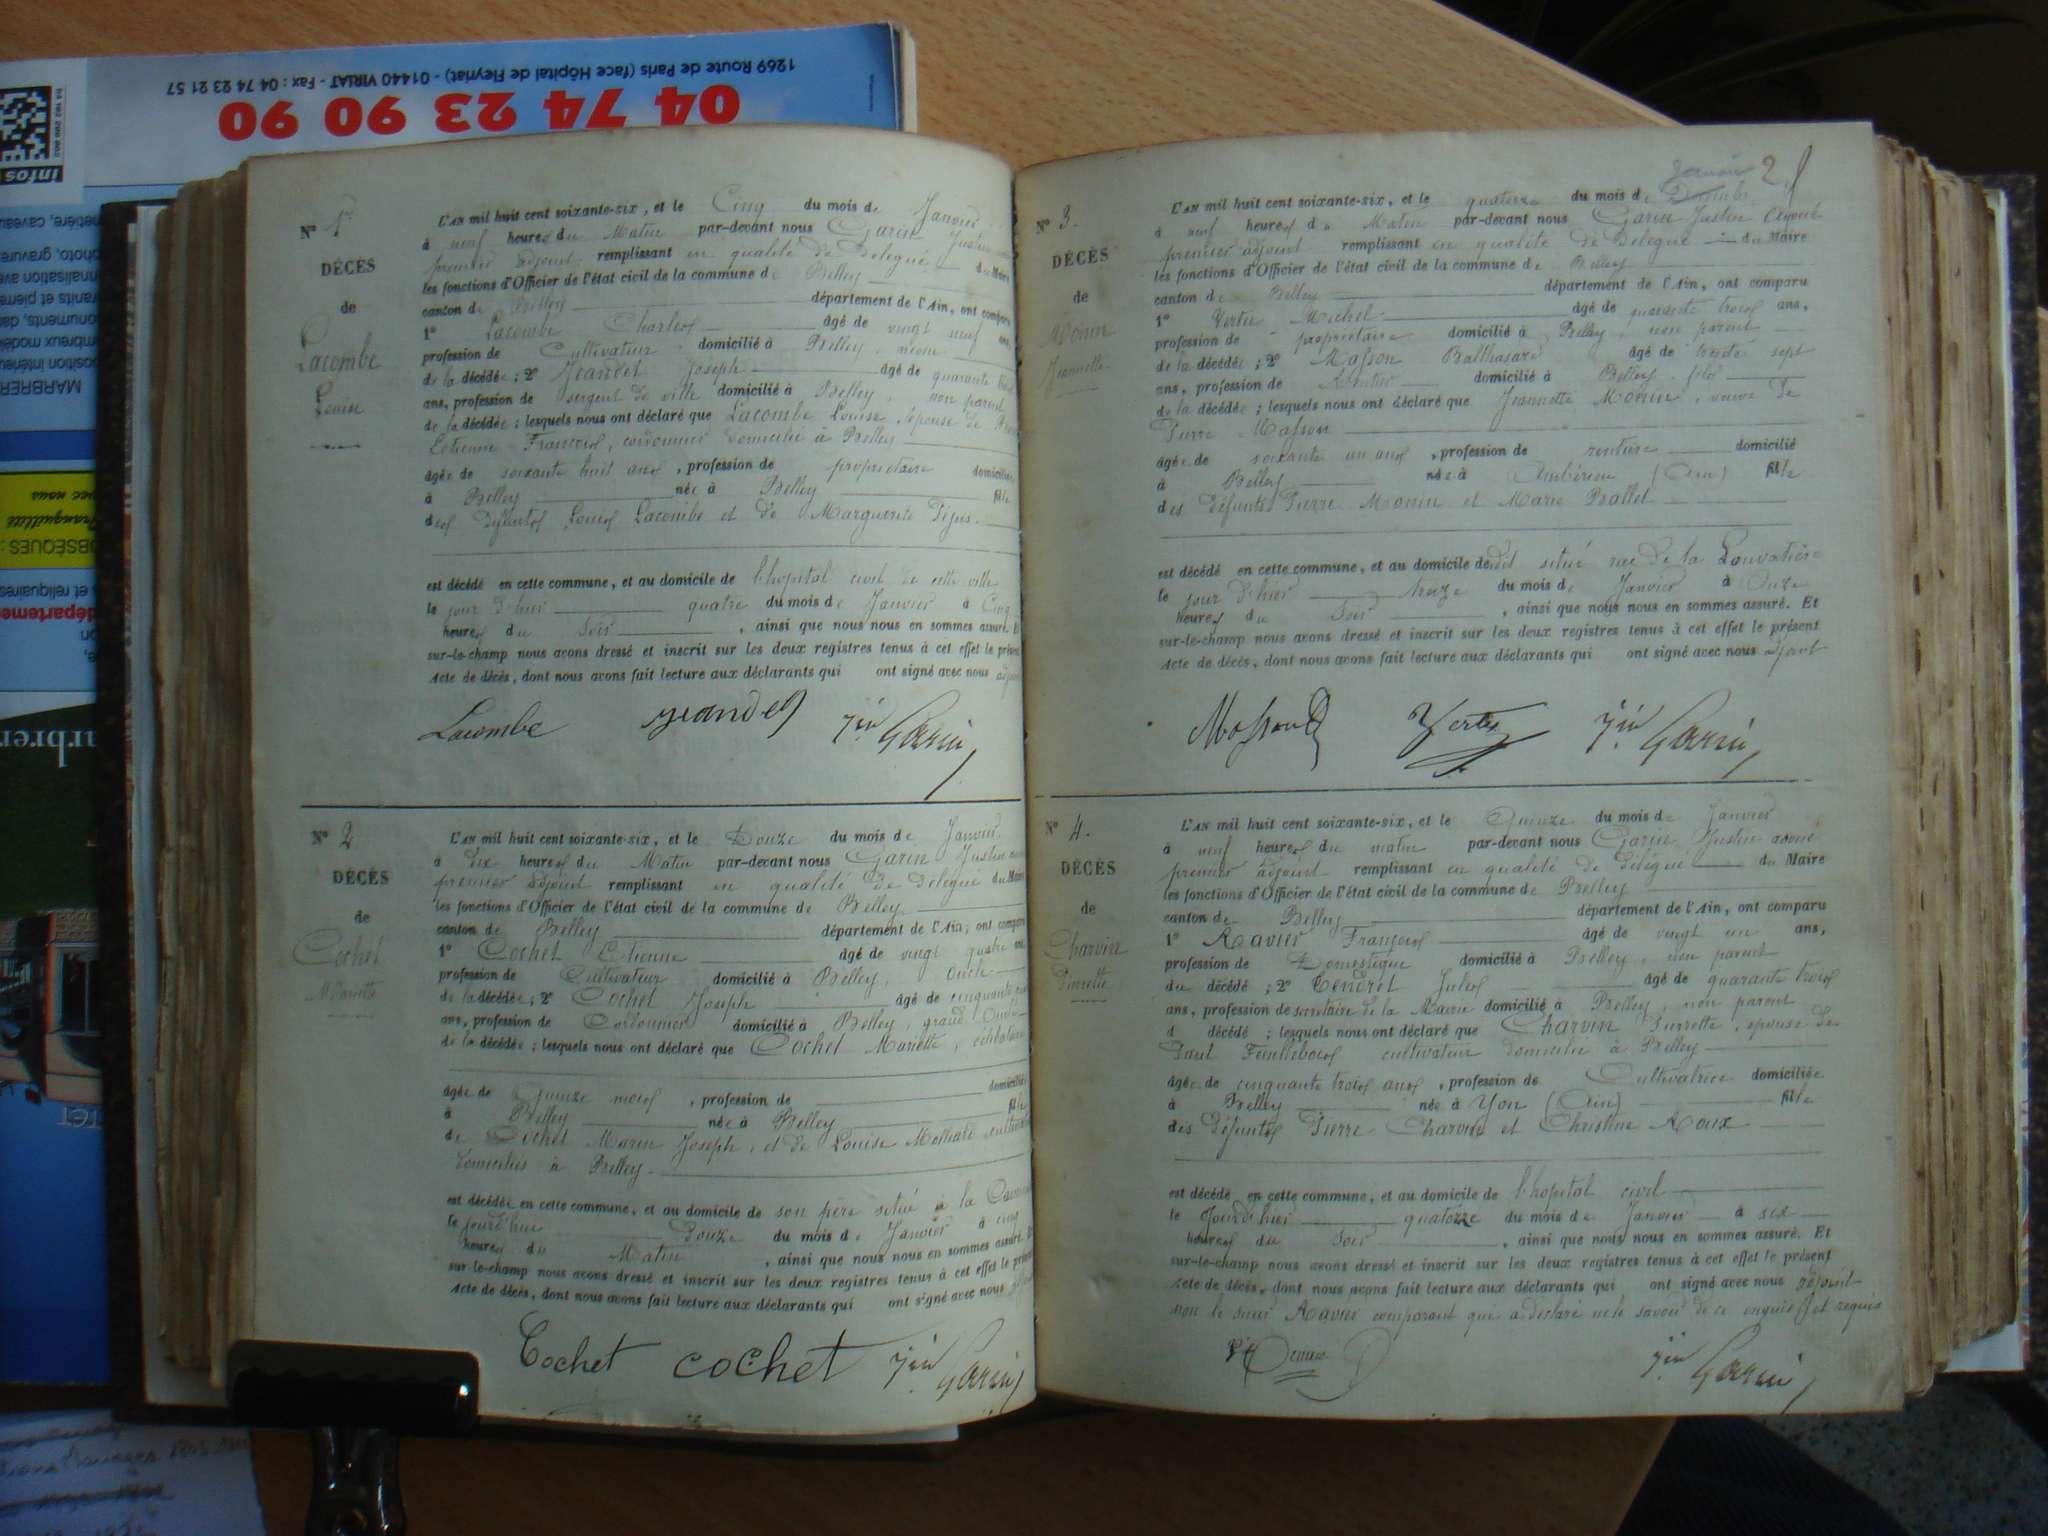 1269 Route de Paris (face Hôpital de Fleyriat) - 01440 VIRIAT - Fax : 04 74 23 21 57
04 74 23 90 90
infos
OBSÈQUES :
N° 1er
DÉCÈS
de
Lacombe
Louise
L'AN mil huit cent soixante-six, et le Cinq du mois de Janvier
à neuf heures du Matin par-devant nous Garin Justin
premier adjoint remplissant en qualité de Délégué du Maire
les fonctions d'Officier de l'état civil de la commune de Belley
canton de Belley département de l'Ain, ont comparu
1° Lacombe Charles âgé de vingt neuf ans,
profession de Cultivateur domicilié à Belley, neveu
de la décédée ; 2° Jeandet Joseph âgé de quarante
ans, profession de sergent de ville domicilié à Belley, non parent
de la décédée ; lesquels nous ont déclaré que Lacombe Louise, épouse de
Etienne François, cordonnier domicilié à Belley
âgée de soixante huit ans, profession de propriétaire domiciliée
à Belley née à Belley fille
des défunts Louis Lacombe et de Marguerite
est décédé en cette commune, et au domicile de l'hopital civil de cette ville
le jour d'hier quatre du mois de Janvier à Cinq
heures du Soir, ainsi que nous nous en sommes assuré. Et
sur-le-champ nous avons dressé et inscrit sur les deux registres tenus à cet effet le présent
Acte de décès, dont nous avons fait lecture aux déclarants qui ont signé avec nous adjoint
Lacombe jeandet Jin Garin
N° 2
DÉCÈS
de
Cochet
Mariette
L'AN mil huit cent soixante-six, et le Douze du mois de Janvier
à dix heures du Matin par-devant nous Garin Justin
premier adjoint remplissant en qualité de délégué du Maire
les fonctions d'Officier de l'état civil de la commune de Belley
canton de Belley département de l'Ain, ont comparu
1° Cochet Etienne âgé de vingt quatre ans,
profession de Cultivateur domicilié à Belley, Oncle
de la décédée ; 2° Cochet Joseph âgé de cinquante
ans, profession de Cordonnier domicilié à Belley, grand Oncle
de la décédée ; lesquels nous ont déclaré que Cochet Mariette, célibataire
âgée de Quinze mois, profession de domiciliée
à Belley née à Belley fille
de Cochet Marin Joseph, et de Louise
domiciliés à Belley
est décédée en cette commune, et au domicile de son père situé à la
le jourd'hui Douze du mois de Janvier à cinq
heures du Matin, ainsi que nous nous en sommes assuré. Et
sur-le-champ nous avons dressé et inscrit sur les deux registres tenus à cet effet le présent
Acte de décès, dont nous avons fait lecture aux déclarants qui ont signé avec nous
Cochet cochet Jin Garin
Janvier 2
N° 3.
DÉCÈS
de
Monin
Jeannette
L'AN mil huit cent soixante-six, et le quatorze du mois de
à neuf heures du Matin par-devant nous Garin Justin Avoué
premier adjoint remplissant en qualité de Délégué du Maire
les fonctions d'Officier de l'état civil de la commune de Belley
canton de Belley département de l'Ain, ont comparu
1° Vertu Michel âgé de quarante trois ans,
profession de propriétaire domicilié à Belley, non parent
de la décédée ; 2° Masson Balthasard âgé de trente sept
ans, profession de Rentier domicilié à Belley, fils
de la décédée ; lesquels nous ont déclaré que Jeannette Monin, veuve de
Pierre Masson
âgée de soixante un ans, profession de rentière domicilié
à Belley née à Ambérieu (Ain) fille
des défunts Pierre Monin et Marie Ballet
est décédé en cette commune, et au domicile dudit situé rue de la
le jour d'hier treize du mois de Janvier à Onze
heures du Soir, ainsi que nous nous en sommes assuré. Et
sur-le-champ nous avons dressé et inscrit sur les deux registres tenus à cet effet le présent
Acte de décès, dont nous avons fait lecture aux déclarants qui ont signé avec nous adjoint
Masson Vertu Jin Garin
N° 4.
DÉCÈS
de
Charvin
Pierrette
L'AN mil huit cent soixante-six, et le Quinze du mois de Janvier
à neuf heures du matin par-devant nous Garin Justin avoué
premier adjoint remplissant en qualité de délégué du Maire
les fonctions d'Officier de l'état civil de la commune de Belley
canton de Belley département de l'Ain, ont comparu
1° Ravier François âgé de vingt un ans,
profession de Domestique domicilié à Belley, non parent
du décédé ; 2° Tendret Jules âgé de quarante trois
ans, profession de secrétaire de la Mairie domicilié à Belley, non parent
d décédé ; lesquels nous ont déclaré que Charvin Pierrette, épouse de
Paul Feuillebois cultivateur domicilié à Belley
âgée de cinquante trois ans, profession de Cultivatrice domiciliée
à Belley née à Yon (Ain) fille
des défunts Pierre Charvin et Christine Roux
est décédé en cette commune, et au domicile de l'hopital civil
le Jour d'hier quatorze du mois de Janvier à six
heures du Soir, ainsi que nous nous en sommes assuré. Et
sur-le-champ nous avons dressé et inscrit sur les deux registres tenus à cet effet le présent
Acte de décès, dont nous avons fait lecture aux déclarants qui ont signé avec nous adjoint
non le sieur Ravier comparant qui a déclaré ne le savoir de ce enquis et requis
Jin Garin